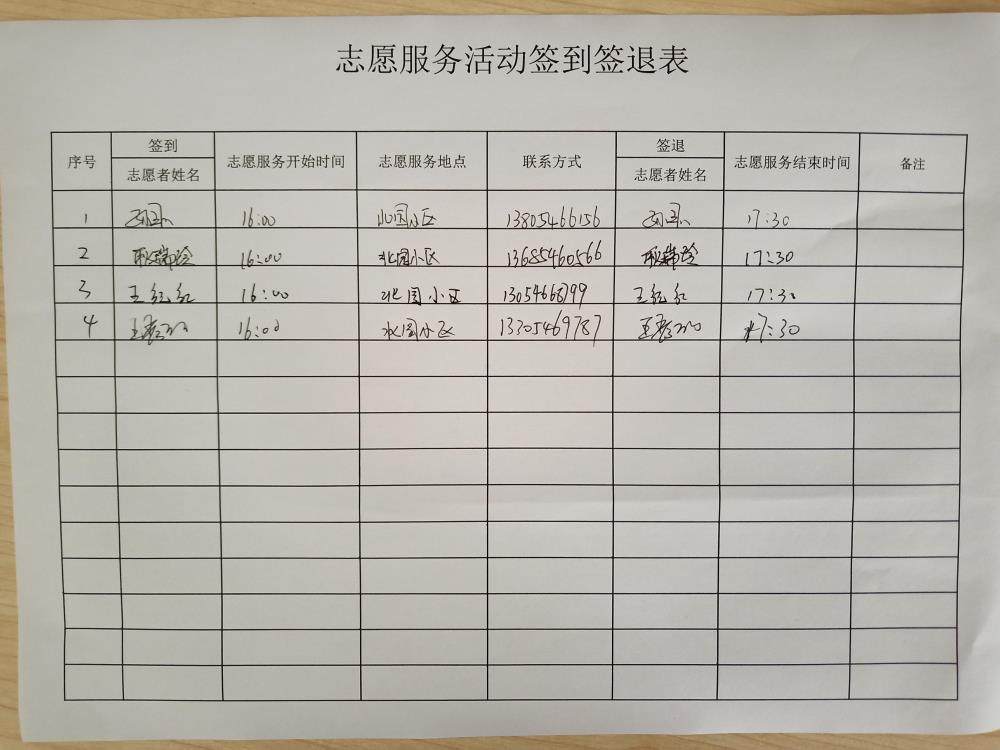 志愿服务活动签到签退表
序号 签到 志愿者姓名 志愿服务开始时间 志愿服务地点 联系方式 签退 志愿者姓名 志愿服务结束时间 备注
1 16:00 北园小区 13805466156 17:30
2 16:00 北园小区 13685460566 17:30
3 王红红 16:00 北园小区 王红红 17:30
4 16:00 北园小区 13305469787 17:30